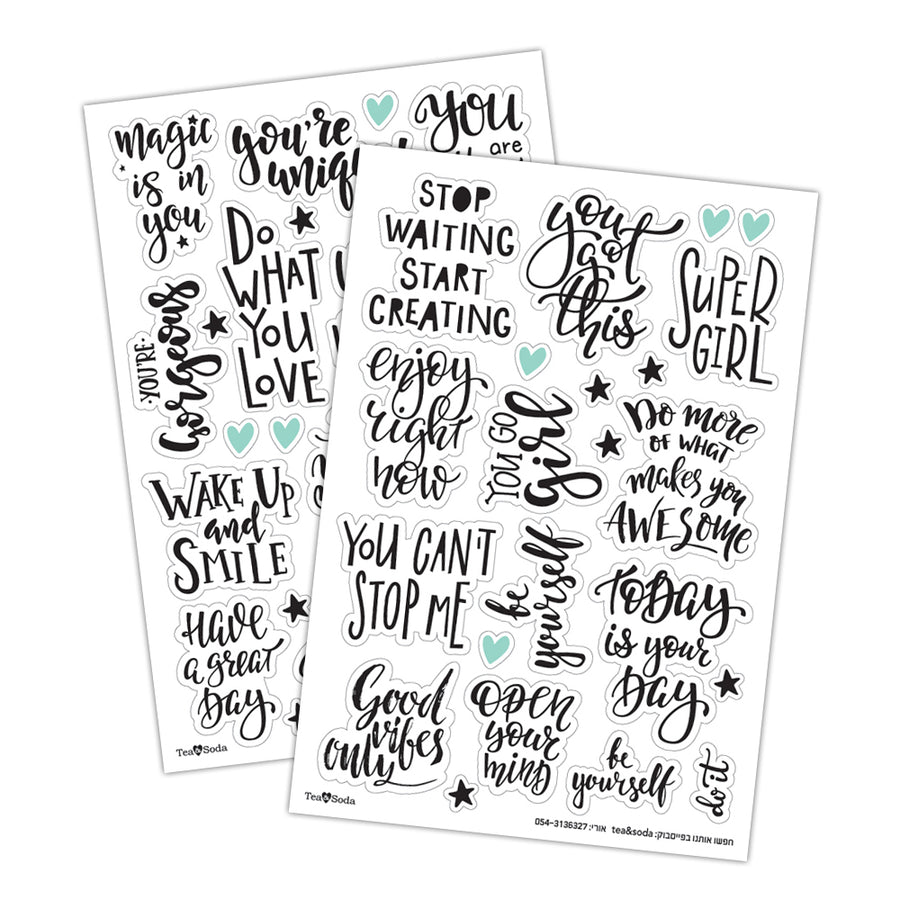 magic
is in
you
you're
You
are
Do
WHAT
YOU
LOVE
YOU'RE
Gorgeous
WAKE UP
and
SMILE
HAVE
a great
DAY
Tea&Soda
STOP
WAITING
START
CREATING
you
got
this
SUPER
GIRL
enjoy
right
now
YOU GO
girl
Do more
OF WHAT
makes you
AWESOME
YOU CAN'T
STOP ME
be
yourself
TODAY
is your
DAY
Good
vibes
only
OPEN
your
mind
be
yourself
do it
Tea&Soda
חפשו אותנו בפייסבוק: tea&soda אורי: 054-3136327